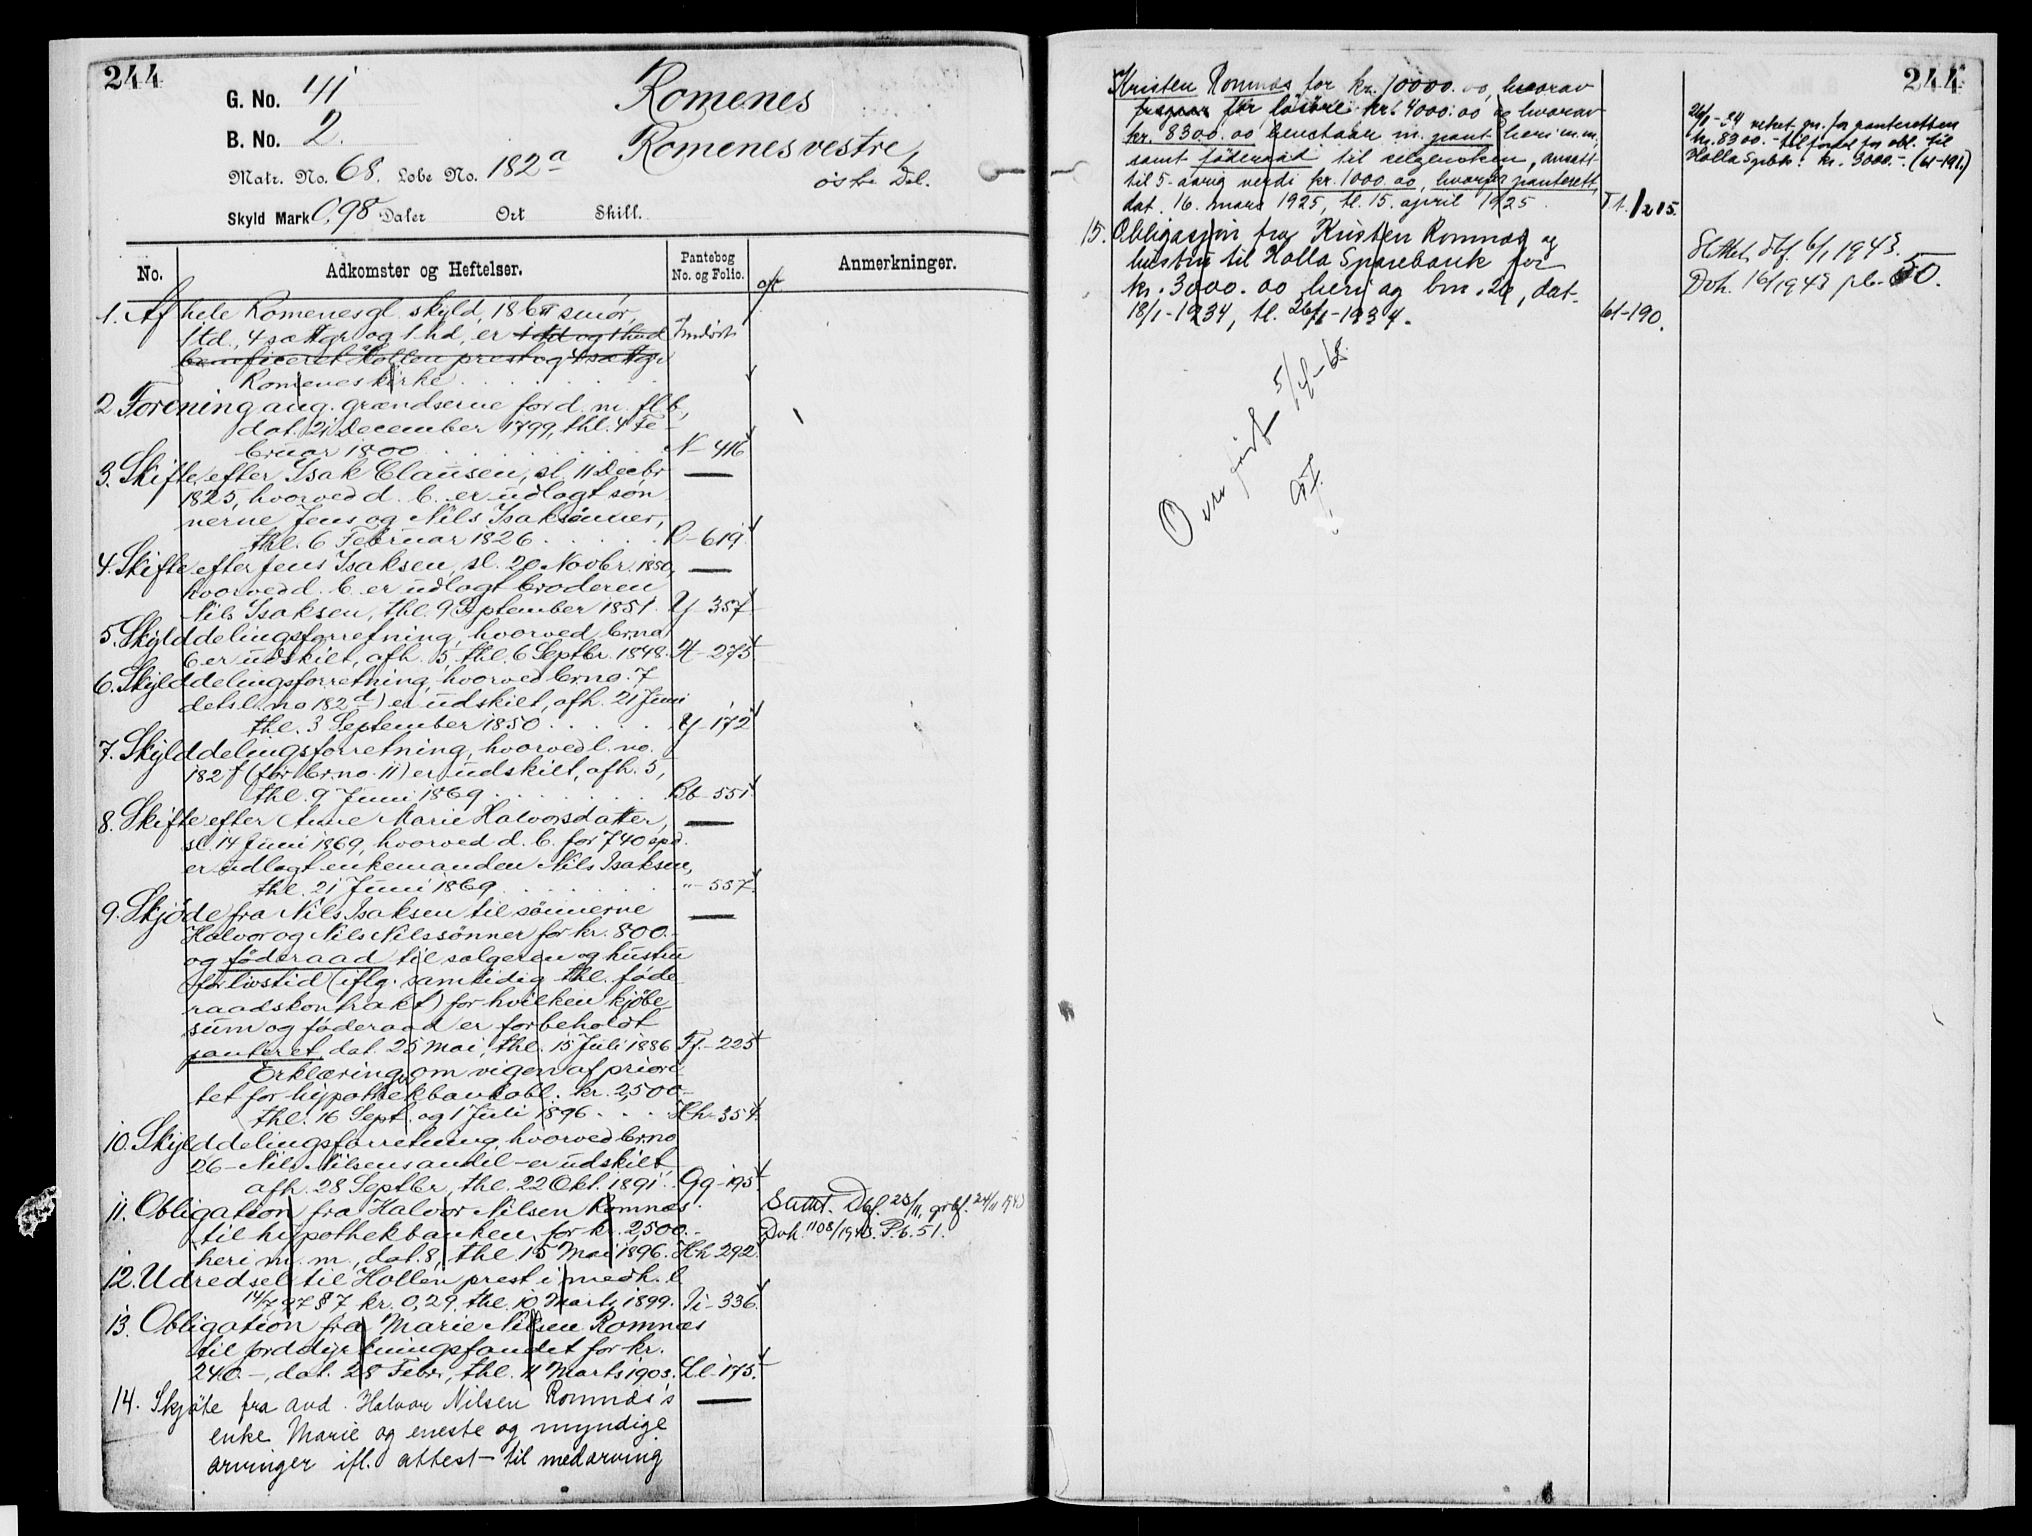 244
G. No. 41
Romenes
B. No. 2.
Romenes vestre,
Matr. No. 68. Løbe No. 182a
østre Del.
Skyld Mark 0,98 Daler Ort Skill.
No.
Adkomster og Heftelser.
Pantebog No. og Folio.
Anmerkninger.
1. Af hele Romenes gl. skyld, 18 smør,
1 td., 4 sættgr og 1 hd, er 1 td og 1 hud Indført
beneficeret Hollen prest og 4 sættgr
Romenes kirke
2. Forening ang. grændserne for d. m. fl. b,
dat. 21 December 1799, thl. 4 Fe-
bruar 1800 N - 416
3. Skifte efter Isak Clausen, sl. 11 Decbr —
1825, hvorved d. b. er udlagt søn-
nerne Jens og Nils Isaksønner,
thl. 6 Februar 1826 O - 619
4. Skifte efter Jens Isaksen, sl. 20 Novbr. 1850, —
hvorved d. b. er udlagt broderen
Nils Isaksen, thl. 9 September 1851. Y - 357
5. Skylddelingsforretning, hvorved br.no
6 er udskilt, afh. 5, thl. 6 Septbr. 1848. X - 275
6. Skylddelingsforretning, hvorved br.no. 7
dets l. no 182d) er udskilt, afh. 21 Juni
thl. 3 September 1850 Y - 172
7. Skylddelingsforretning, hvorved l. no.
182f (før br.no. 11) er udskilt, afh. 5,
thl. 9 Juni 1869 Bb - 551
8. Skifte efter Anne Marie Halvorsdatter, —
sl. 14 Juni 1869, hvorved d. b. for 740 spd.
er udlagt enkemanden Nils Isaksen,
thl. 21 Juni 1869 " - 557
9. Skjøde fra Nils Isaksen til sønnerne —
Halvor og Nils Nilssønner for kr. 800.-
og føderaad til sælgeren og hustru
for livstid (iflg. samtidig thl. føde-
raadskontrakt) for hvilken kjøbe-
sum og føderaad er forbeholdt
panteret, dat. 25 Mai, thl. 15 Juli 1886 Ff. - 225
Erklæringer om vigen af priori-
tet for hypothekbankobl. kr. 2,500.-
thl. 16 Sept. og 1 Juli 1896 Hh - 354.
10. Skylddelingsforretning, hvorved br.no
26 - Nils Nilsens andel - er udskilt,
afh. 28 Septbr, thl. 22 Okt. 1891. Gg - 195
11. Obligation fra Halvor Nilsen Romnæs
til hypothekbanken for kr. 2,500.-
heri m. m., dat. 8, thl. 15 Mai 1896. Hh 292
Slettet. Dbf. 23/11, grbf. 24/11 1943
Dvh. 1108/1943. P.b. 51.
12. Udredsel til Hollen prest i medh. l.
14/7 97 § 7 kr. 0,29, thl. 10 Marts 1899. Ii - 336.
13. Obligation fra Marie Nilsen Romnæs
til jorddyrkningsfondet for kr.
240.-, dat. 28 Febr., thl. 11 Marts 1903. Ll - 175.
14. Skjøte fra avd. Halvor Nilsen Romnæs's —
enke Marie og eneste og myndige
arvinger ifl. attest - til medarving
244
Kristen Romnæs for kr. 10000.00, hvorav
for løsøre kr. 4000.00 og hvorav
kr. 8300.00 henstaar m. pant heri m.m,
samt føderaad til selgersken, ansatt
til 5-aarig verdi kr. 1000.00, hvorfor panterett,
dat. 16. mars 1925, tl. 15. april 1925. Tt. / 215.
26/1 - 34 veket pr. for panteretten
kr. 8300.- til fordel for obl. til
Holla Spbk. kr. 3000.- (61-191)
15. Obligasjon fra Kristen Romnæs og
hustru til Holla Sparebank for
kr. 3000.00 heri og bnr. 26, dat.
18/1 - 1934, tl. 26/1 - 1934. 61-190.
Slettet, dbf. 6/1 1943.
Dvh. 16/1943 pb. 50.
Overført 5/4-62